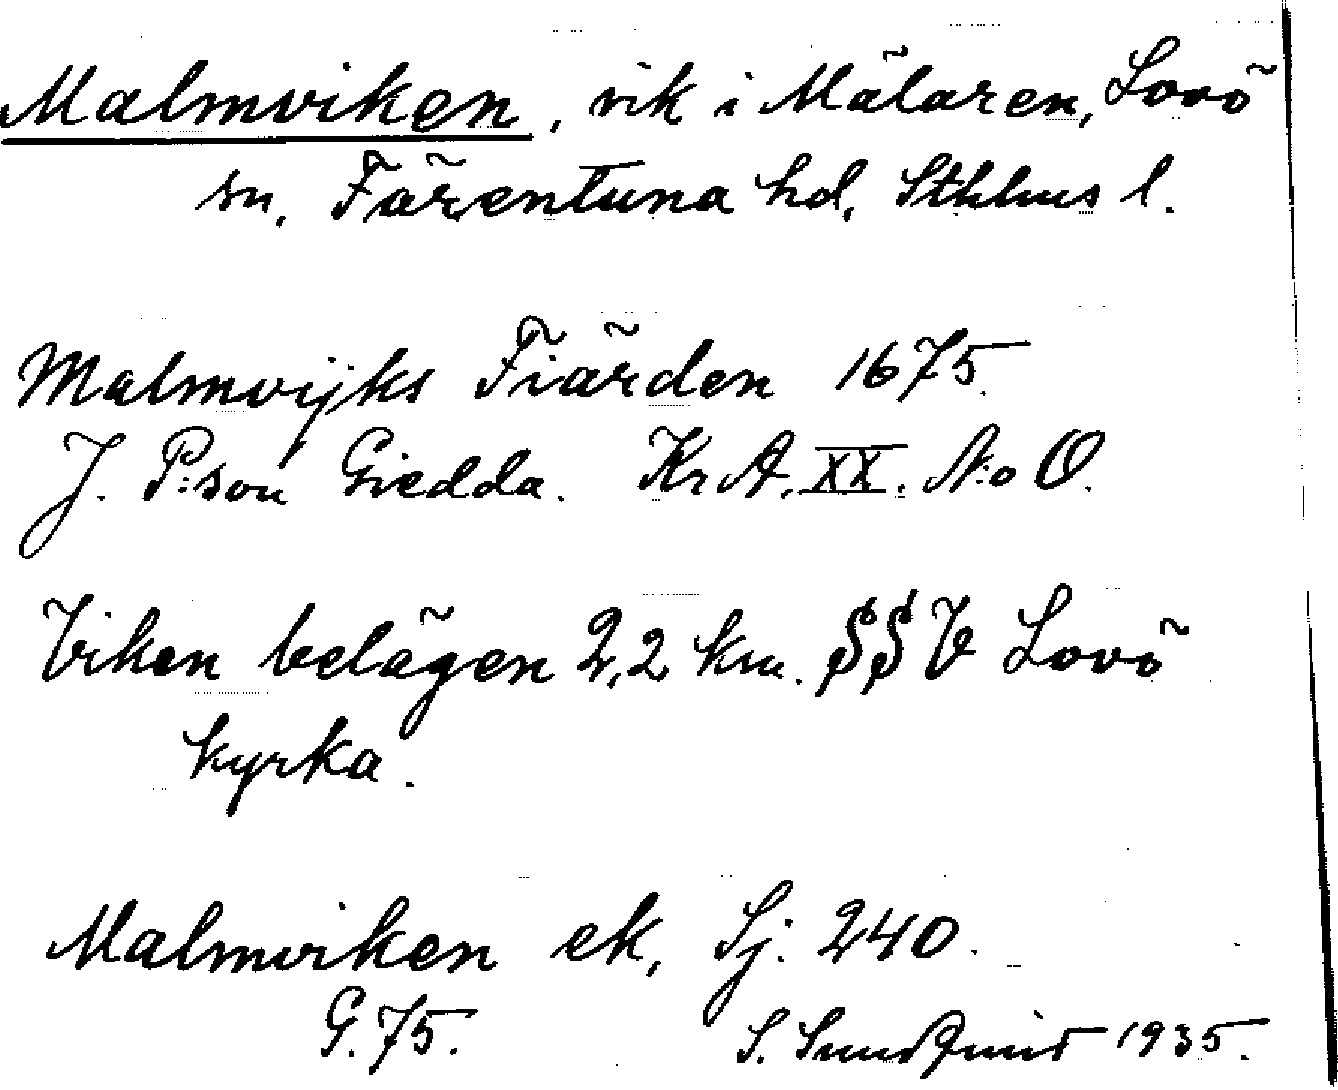 Malmviken, vik i Mälaren, Lovö
sn, Färentuna hd, Sthlms l.
Malmvijks Fiärden 1675.
J. P:son Giedda. Kr A. XX. N:o O.
Viken belägen 2,2 km. SSV Lovö
kyrka.
Malmviken ek, Sj. 240.
G. 75. S. Sundquist 1935.